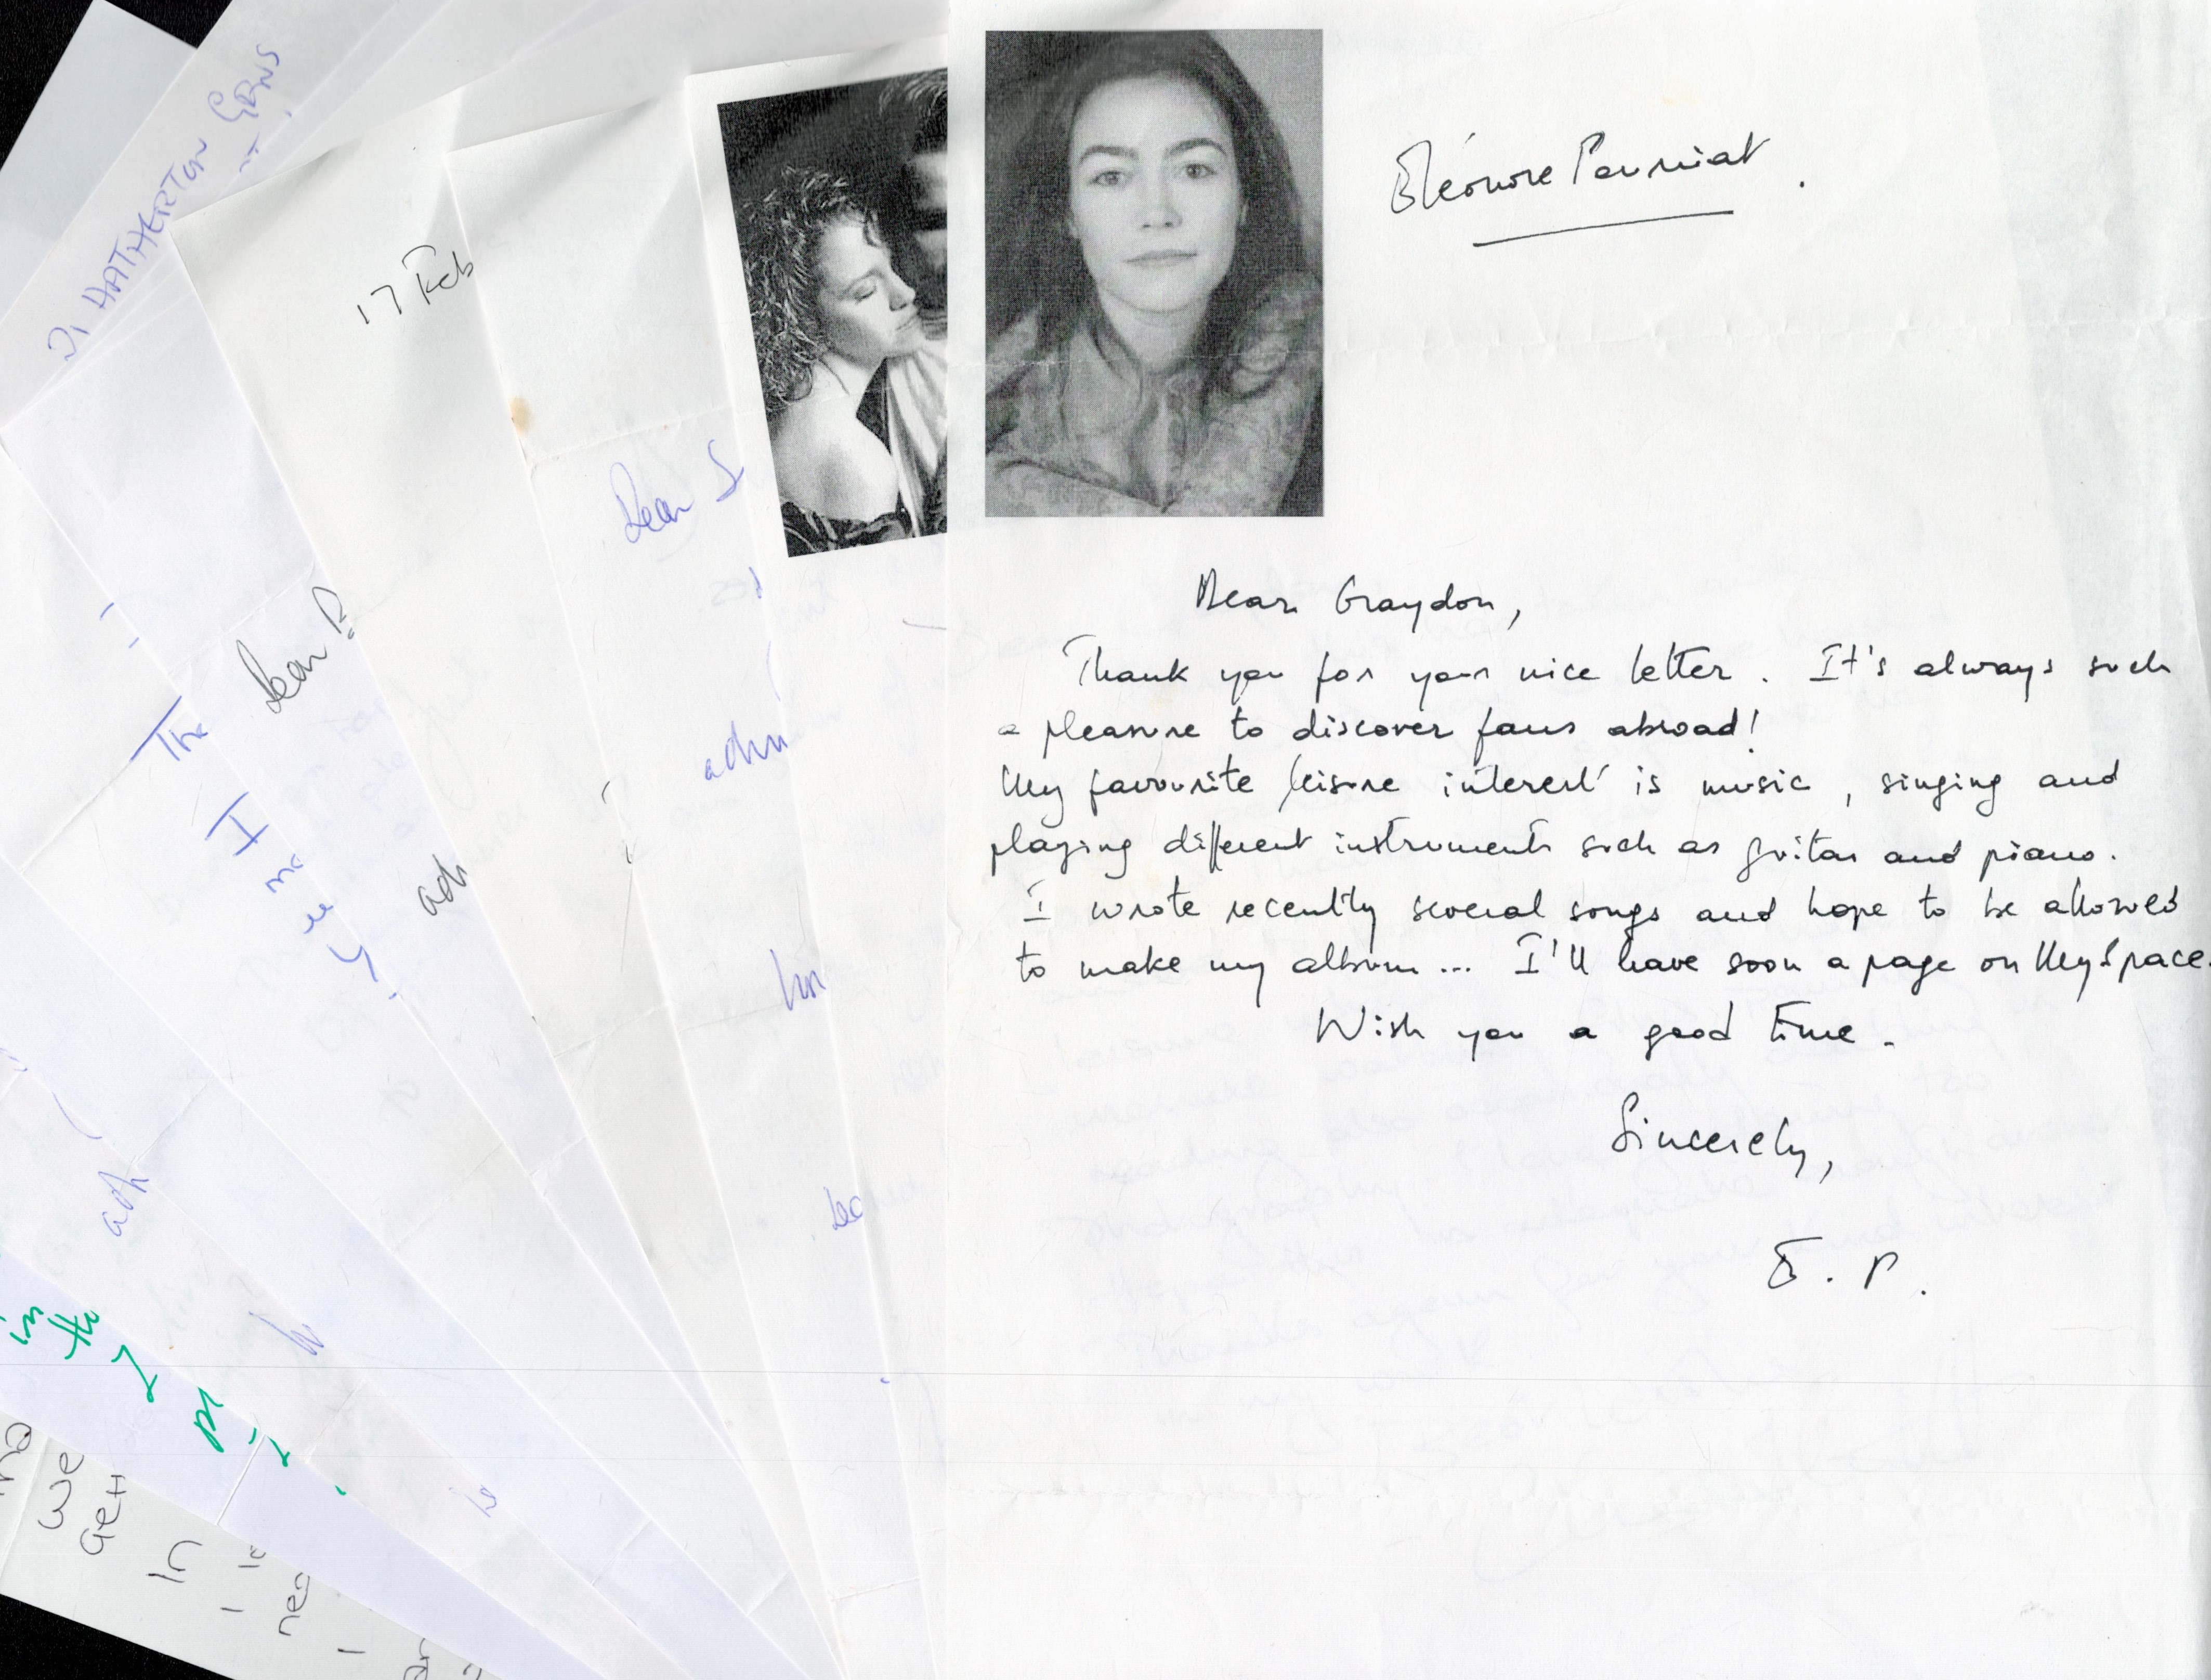 Eléonore Pourriat.
Dear Graydon,
Thank you for your nice letter. It's always such
a pleasure to discover fans abroad!
My favourite leisure interest is music, singing and
playing different instruments such as guitar and piano.
I wrote recently several songs and hope to be allowed
to make my album... I'll have soon a page on MySpace.
Wish you a good time.
Sincerely,
E. P.
HATHERTON GDNS
17 Feb
Dear
Dear
The
I
in
the
we
In